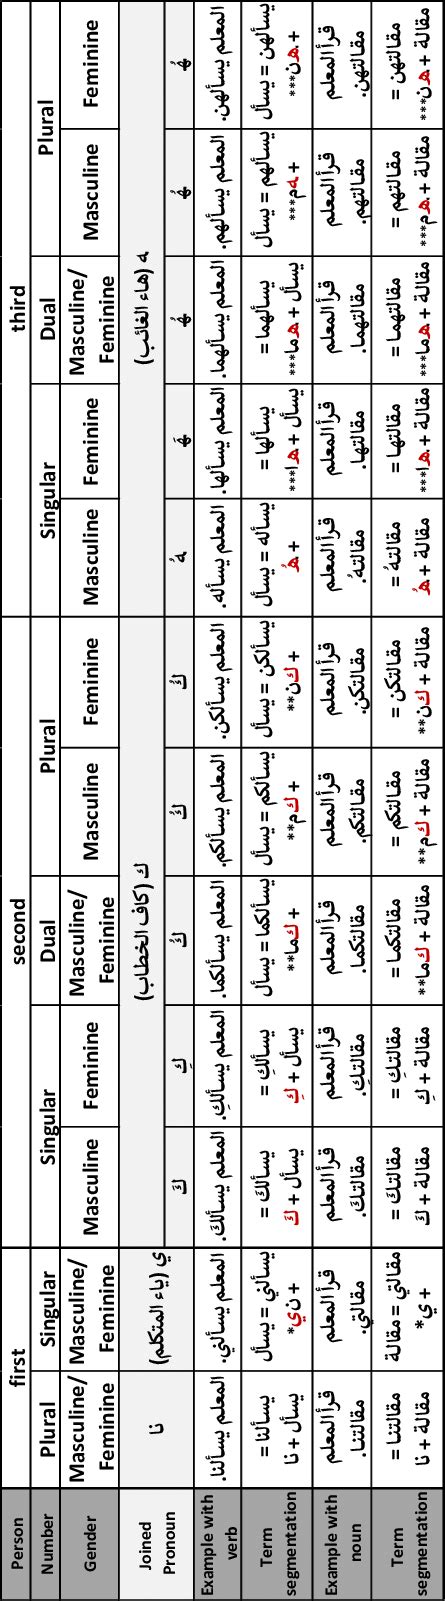 Person
first
second
third
Number
Plural
Singular
Singular
Dual
Plural
Singular
Dual
Plural
Gender
Masculine/
Feminine
Masculine/
Feminine
Masculine
Feminine
Masculine/
Feminine
Masculine
Feminine
Masculine
Feminine
Masculine/
Feminine
Masculine
Feminine
Joined
Pronoun
نا
ي (ياء المتكلم)
ك (كاف الخطاب)
ه (هاء الغائب)
كَ
كِ
كُ
كُ
كُ
هُ
هَ
هُ
هُ
هُ
Example with
verb
المعلم يسألنا.
المعلم يسألني.
المعلم يسألكَ.
المعلم يسألكِ.
المعلم يسألكما.
المعلم يسألكم.
المعلم يسألكن.
المعلم يسأله.
المعلم يسألها.
المعلم يسألهما.
المعلم يسألهم.
المعلم يسألهن.
Term
segmentation
يسألنا =
يسأل + نا
يسألني = يسأل
+ ني*
يسألكَ =
يسأل + كَ
يسألكِ =
يسأل + كِ
يسألكما = يسأل
+ كما**
يسألكم = يسأل
+ كم**
يسألكن = يسأل
+ كن**
يسأله = يسأل
+ هُ
يسألها =
يسأل + ها***
يسألهما =
يسأل + هما***
يسألهم = يسأل
+ هم***
يسألهن = يسأل
+ هن***
Example with
noun
قرأ المعلم
مقالتنا.
قرأ المعلم
مقالتي.
قرأ المعلم
مقالتكَ.
قرأ المعلم
مقالتكِ.
قرأ المعلم
مقالتكما.
قرأ المعلم
مقالتكم.
قرأ المعلم
مقالتكن.
قرأ المعلم
مقالتهُ.
قرأ المعلم
مقالتها.
قرأ المعلم
مقالتهما.
قرأ المعلم
مقالتهم.
قرأ المعلم
مقالتهن.
Term
segmentation
مقالتنا =
مقالة + نا
مقالتي = مقالة
+ ي*
مقالتكَ =
مقالة + كَ
مقالتكِ =
مقالة + كِ
مقالتكما =
مقالة + كما**
مقالتكم =
مقالة + كم**
مقالتكن =
مقالة + كن**
مقالتهُ =
مقالة + هُ
مقالتها =
مقالة + ها***
مقالتهما =
مقالة + هما***
مقالتهم =
مقالة + هم***
مقالتهن =
مقالة + هن***